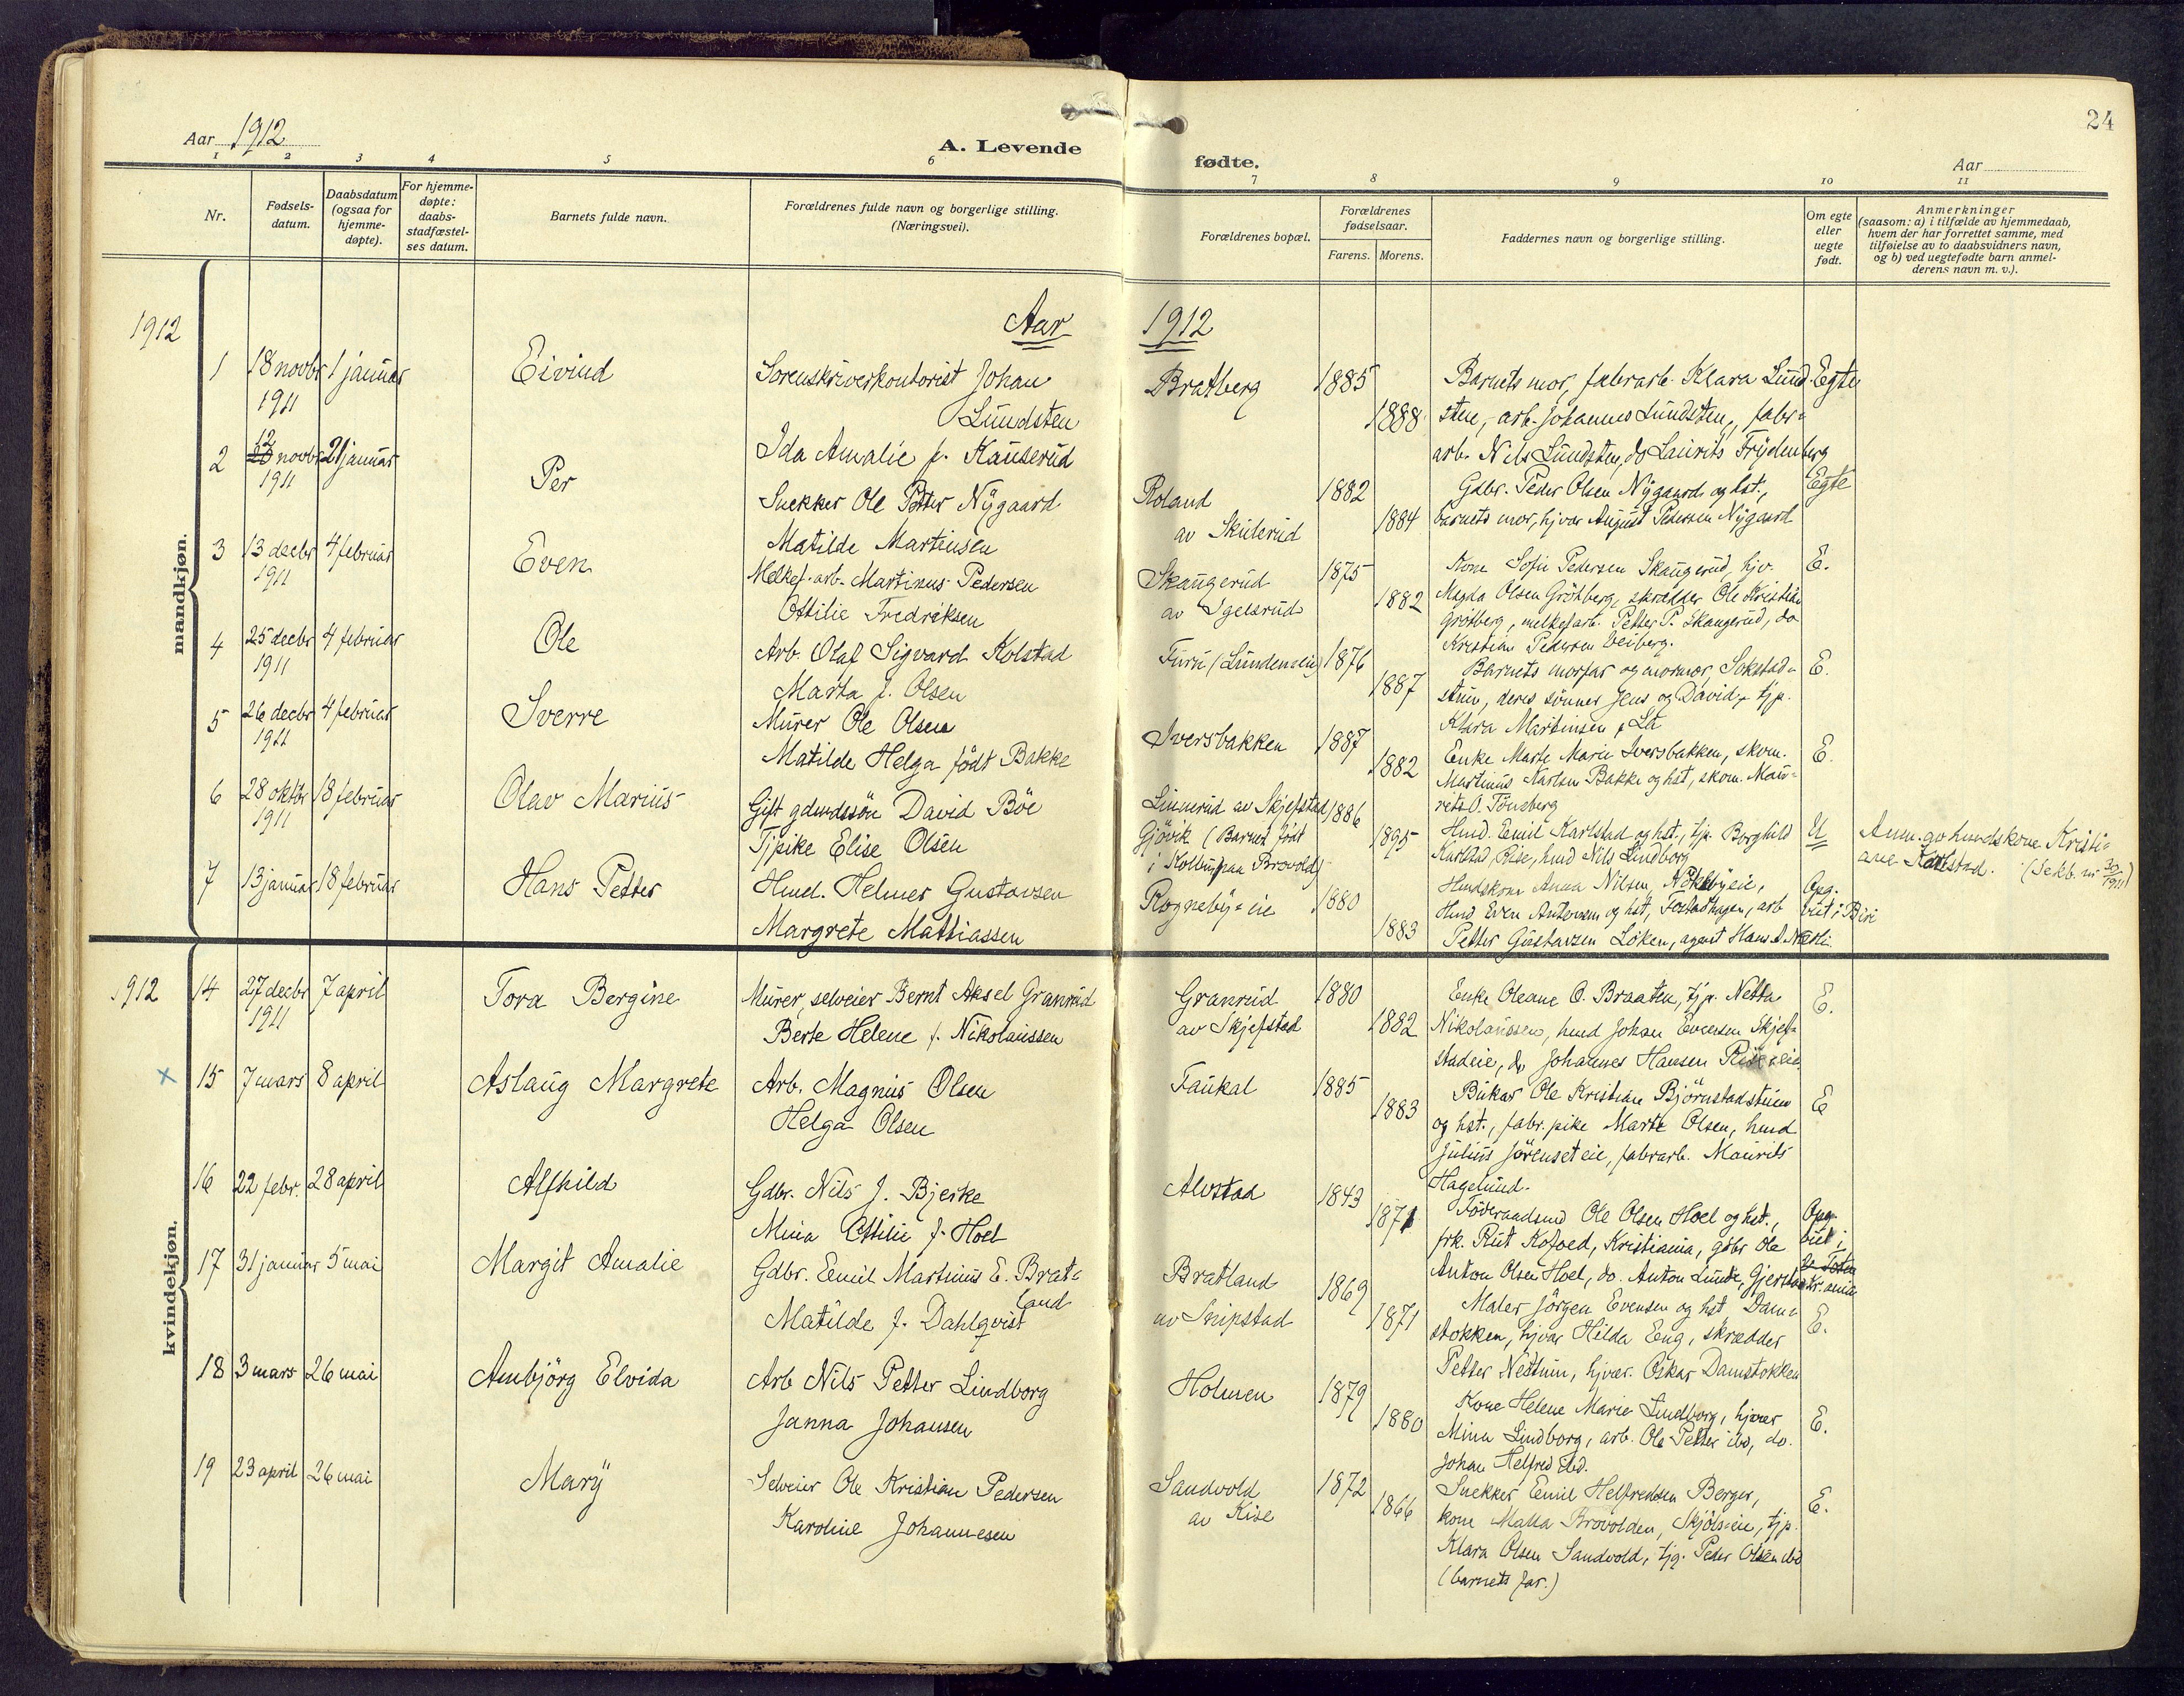 24
Aar 1912
A. Levende
fødte.
Aar
1 2 3 4 5 6 7 8 9 10 11
Nr.
Fødsels-
datum.
Daabsdatum
(ogsaa for
hjemme-
døpte).
For hjemme-
døpte:
daabs-
stadfæstel-
ses datum.
Barnets fulde navn.
Forældrenes fulde navn og borgerlige stilling.
(Næringsvei).
Forældrenes bopæl.
Forældrenes
fødselsaar.
Farens. Morens.
Faddernes navn og borgerlige stilling.
Om egte
eller
uegte
født.
Anmerkninger
(saasom: a) i tilfælde av hjemmedaab,
hvem der har forrettet samme, med
tilføielse av to daabsvidners navn,
og b) ved uegtefødte barn anmel-
derens navn m. v.).
Aar 1912
1912
mandkjøn.
1 18 novbr 1911 1 januar Eivind
Sorenskriverkontorist Johan
Lundsten
Ida Amalie f. Kauserud
Bratberg 1885 1888
Barnets mor, fabrarb. Klara Lund-
sten, arb. Johannes Lundsten, fabr-
arb. Nils Lundsten, do Laurits Frydenberg
Egte
2 12 novbr 1911 21 januar Per
Snekker Ole Petter Nygaard
Matilde Martinsen
Roland
av Skulerud
1882 1884
Gdbr. Peder Olsen Nygaard og hst.,
barnets mor, hjvær August Pedersen Nygaard
Egte
3 13 decbr 1911 4 februar Even
Melkef. arb. Martinus Pedersen
Ottilie Fredriksen
Skaugerud
av Igelsrud
1875 1882
Kone Sofie Pedersen Skaugerud, hjv.
Magda Olsen Gröтberg, skrædder Ole Kristian
Gröтberg, melkefarb. Petter P. Skaugerud, do
Kristian Pedersen Veiberg.
E.
4 25 decbr 1911 4 februar Ole
Arb. Olaf Sigvard Kolstad
Marta f. Olsen
Furu (Lundeneie)
1876 1887
Barnets morfar og mormor, Sokstad-
stuen, deres sønner Jens og David, tjp.
Klara Martinsen,
E.
5 26 decbr 1911 4 februar Sverre
Murer Ole Olsen
Matilde Helga født Bakke
Iversbakken
1887 1882
Enke Marte Marie Iversbakken, skom.
Martinus Karlsen Bakke og hst, skom. Mau-
rits O. Tönsberg
E.
6 28 oktbr 1911 18 februar Olav Marius
Gift gdmdssön David Böe
Tjpike Elise Olsen
Linnerud av Skjefstad
Gjövik (Barnet født
1886 1895
Hmd. Emil Karlstad og hst., tjp. Borghild
Karlstad, Rise, hmd Nils Lindborg
U
Anm. av hmdskone Kristi-
ane Karlstad.
7 13 januar 18 februar Hans Petter
Hmd. Helmer Gustavsen
Margrete Mattiassen
Rognebyeie
1880 1883
Hmdskone Anna Nilsen, Nökkebyeie,
Hmd Even Antonsen og hst, arb
Petter Gustavsen Löken, agent Hans A. Næsli.
Opg.
viet i Biri
1912
kvindekjøn.
14 27 decbr 1911 7 april Tora Bergine
Murer, selveier Bernt Aksel Granrud
Berte Helene f. Nikolaissen
Granrud
av Skjefstad
1880 1882
Enke Oleane O. Braaten, tjp. Netta
Nikolaissen, hmd Johan Evensen Skjef-
stadeie, do Johannes Hansen Riseeie
E.
x 15 7 mars 8 april Aslaug Margrete
Arb. Magnus Olsen
Helga Olsen
Faukal
1885 1883
Bukar Ole Kristian Björnstadstuen
og hst., fabr. pike Marte Olsen, hmd
Julius Jörenseteie, fabrarb. Maurits
Hagelund.
E
16 22 febr. 28 april Alfhild
Gdbr. Nils J. Bjerke
Mina Ottilie f. Hoel
Alvstad
1843 1871
Föderaadsmd Ole Olsen Hoel og hst.,
frk. Rut Kofoed, Kristiania, gdbr Ole
Anton Olsen Hoel, do. Anton Lunde, Gjerstad
Opg.
viet i
Kr.ania
17 31 januar 5 mai Margit Amalie
Gdbr. Emil Martinus E. Brat-
land
Matilde f. Dahlqvist
Bratland
av Snipstad
1869 1871
Maler Jörgen Evensen og hst. Dam-
stokken, hjvær Hilda Eng, skrædder
Petter Nestun, hjvær. Oskar Damstokken
E.
18 3 mars 26 mai Ambjörg Elvida
Arb Nils Petter Lindborg
Janna Johansen
Holmen
1879 1880
Kone Helene Marie Lindborg, hjvær
Mina Lindborg, arb. Ole Petter ibd, do.
Johan Helfred ibd.
E.
19 23 april 26 mai Mary
Selveier Ole Kristian Pedersen
Karoline Johannesen
Sandvold
av Kise
1872 1866
Snekker Emil Helfredsen Berger,
kone Malla Brovolden, Skjölseie, tjp.
Klara Olsen Sandvold, tjg. Peder Olsen ibd
(barnets far.)
E.